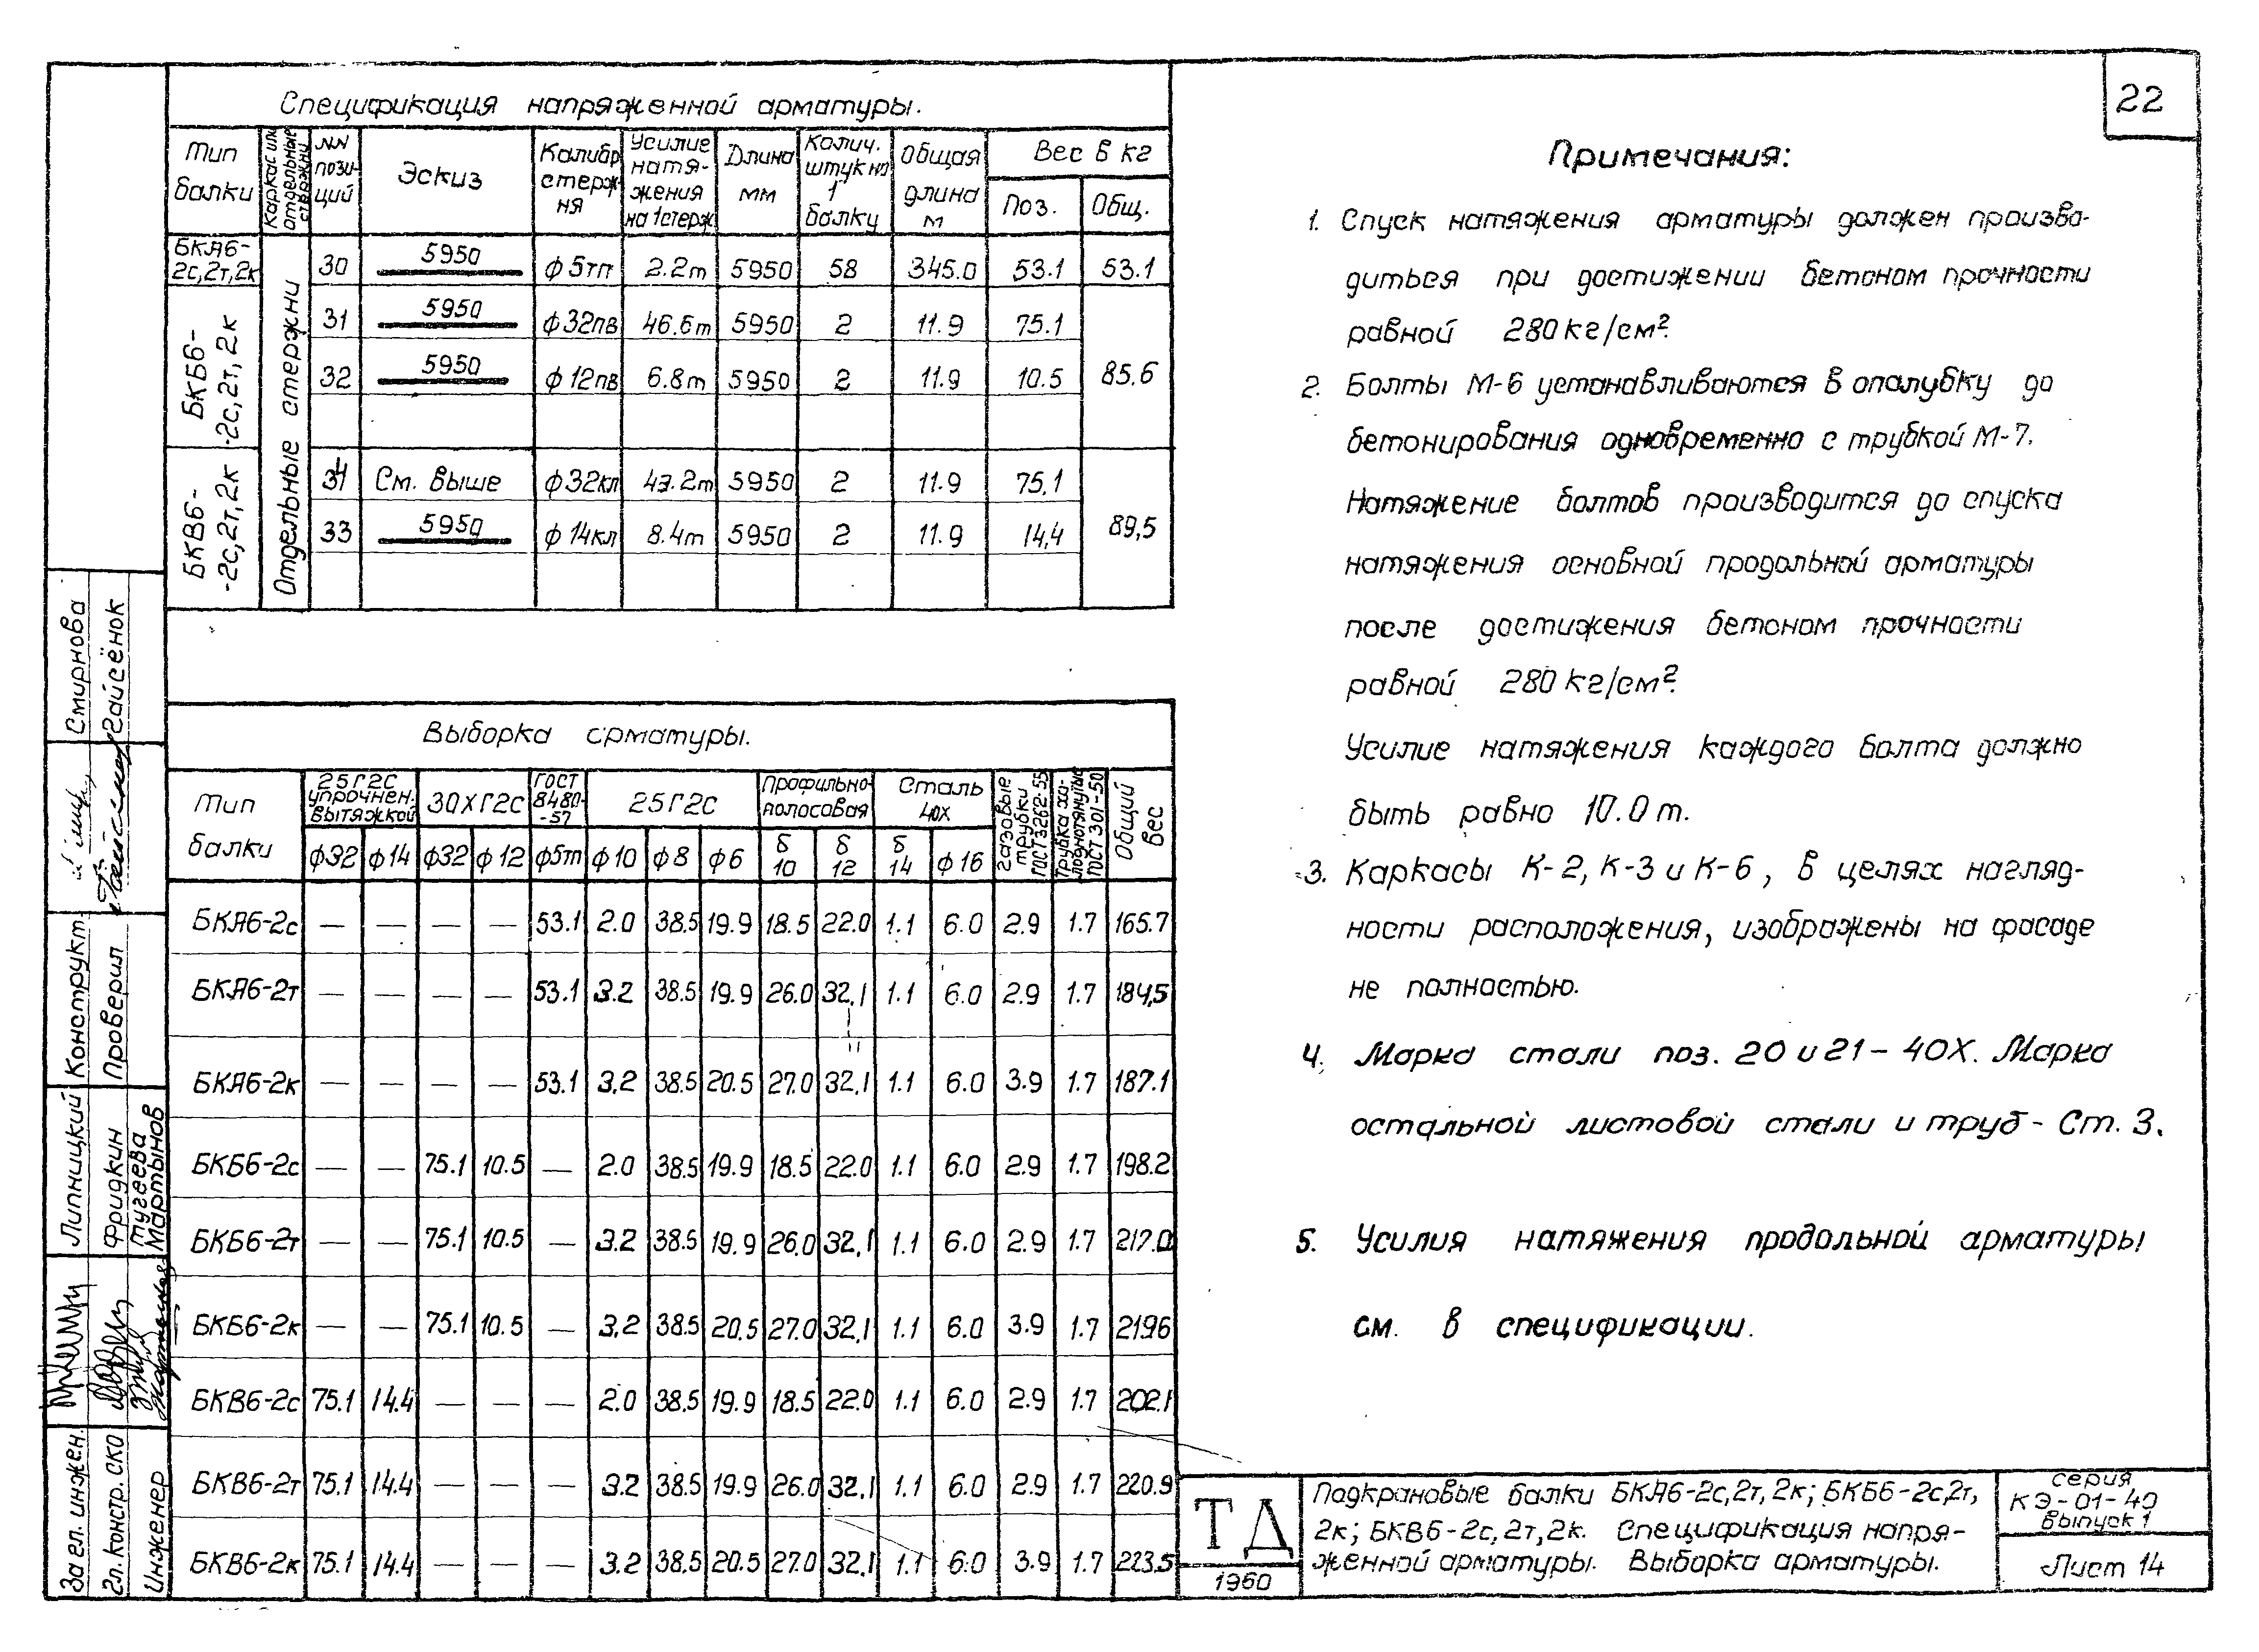 22
Спецификация напряженной арматуры.
Тип балки | Каркас или отдельные стержни | NN позиций | Эскиз | Калибр стержня | Усилие натяжения на 1 стерж. | Длина мм | Колич. штук на 1 балку | Общая длина м | Вес в кг Поз. | Общ.
БКА6-2с,2т,2к | Отдельные стержни | 30 | 5950 | ф5тп | 2.2т | 5950 | 58 | 345.0 | 53.1 | 53.1
БКБ6-2с,2т,2к | 31 | 5950 | ф32пв | 46.6т | 5950 | 2 | 11.9 | 75.1 | 85.6
32 | 5950 | ф12пв | 6.8т | 5950 | 2 | 11.9 | 10.5
БКВ6-2с,2т,2к | 31 | См. выше | ф32кл | 43.2т | 5950 | 2 | 11.9 | 75.1 | 89,5
33 | 5950 | ф14кл | 8.4т | 5950 | 2 | 11.9 | 14,4
Выборка арматуры.
Тип балки | 25Г2С упрочнен. вытяжкой | 30ХГ2С | ГОСТ 8480-57 | 25Г2С | Профильно-полосовая | Сталь 40Х | Газовые трубки ГОСТ 3262-55 | Трубка холоднотянутые ГОСТ 301-50 | Общий вес
ф32 | ф14 | ф32 | ф12 | ф5тп | ф10 | ф8 | ф6 | δ 10 | δ 12 | δ 14 | ф16
БКА6-2с | — | — | — | — | 53.1 | 2.0 | 38.5 | 19.9 | 18.5 | 22.0 | 1.1 | 6.0 | 2.9 | 1.7 | 165.7
БКА6-2т | — | — | — | — | 53.1 | 3.2 | 38.5 | 19.9 | 26.0 | 32,1 | 1.1 | 6.0 | 2.9 | 1.7 | 184,5
БКА6-2к | — | — | — | — | 53.1 | 3.2 | 38.5 | 20.5 | 27.0 | 32,1 | 1.1 | 6.0 | 3.9 | 1.7 | 187.1
БКБ6-2с | — | — | 75.1 | 10.5 | — | 2.0 | 38.5 | 19.9 | 18.5 | 22.0 | 1.1 | 6.0 | 2.9 | 1.7 | 198.2
БКБ6-2т | — | — | 75.1 | 10.5 | — | 3.2 | 38.5 | 19.9 | 26.0 | 32,1 | 1.1 | 6.0 | 2.9 | 1.7 | 217.0
БКБ6-2к | — | — | 75.1 | 10.5 | — | 3.2 | 38.5 | 20.5 | 27.0 | 32,1 | 1.1 | 6.0 | 3.9 | 1.7 | 219.6
БКВ6-2с | 75.1 | 14.4 | — | — | — | 2.0 | 38.5 | 19.9 | 18.5 | 22.0 | 1.1 | 6.0 | 2.9 | 1.7 | 202.1
БКВ6-2т | 75.1 | 14.4 | — | — | — | 3.2 | 38.5 | 19.9 | 26.0 | 32.1 | 1.1 | 6.0 | 2.9 | 1.7 | 220.9
БКВ6-2к | 75.1 | 14.4 | — | — | — | 3.2 | 38.5 | 20.5 | 27.0 | 32.1 | 1.1 | 6.0 | 3.9 | 1.7 | 223.5
Примечания:
1. Спуск натяжения арматуры должен произво-
диться при достижении бетоном прочности
равной 280 кг/см².
2. Болты М-6 устанавливаются в опалубку до
бетонирования одновременно с трубкой М-7.
Натяжение болтов производится до спуска
натяжения основной продольной арматуры
после достижения бетоном прочности
равной 280 кг/см².
Усилие натяжения каждого болта должно
быть равно 10.0 т.
3. Каркасы К-2, К-3 и К-6, в целях нагляд-
ности расположения, изображены на фасаде
не полностью.
4. Марка стали поз. 20 и 21 - 40Х. Марка
остальной листовой стали и труб - Ст. 3.
5. Усилия натяжения продольной арматуры
см. в спецификации.
ТД
1960
Подкрановые балки БКА6-2с,2т,2к; БКБ6-2с,2т,
2к; БКВ6-2с,2т,2к. Спецификация напря-
женной арматуры. Выборка арматуры.
серия
КЭ-01-40
выпуск 1
Лист 14
Смирнова
Гайсёнок
Конструкт.
Проверил
Липницкий
Фридкин
Тугеева
Мартынов
За гл. инжен.
Гл. констр. СКО
Инженер